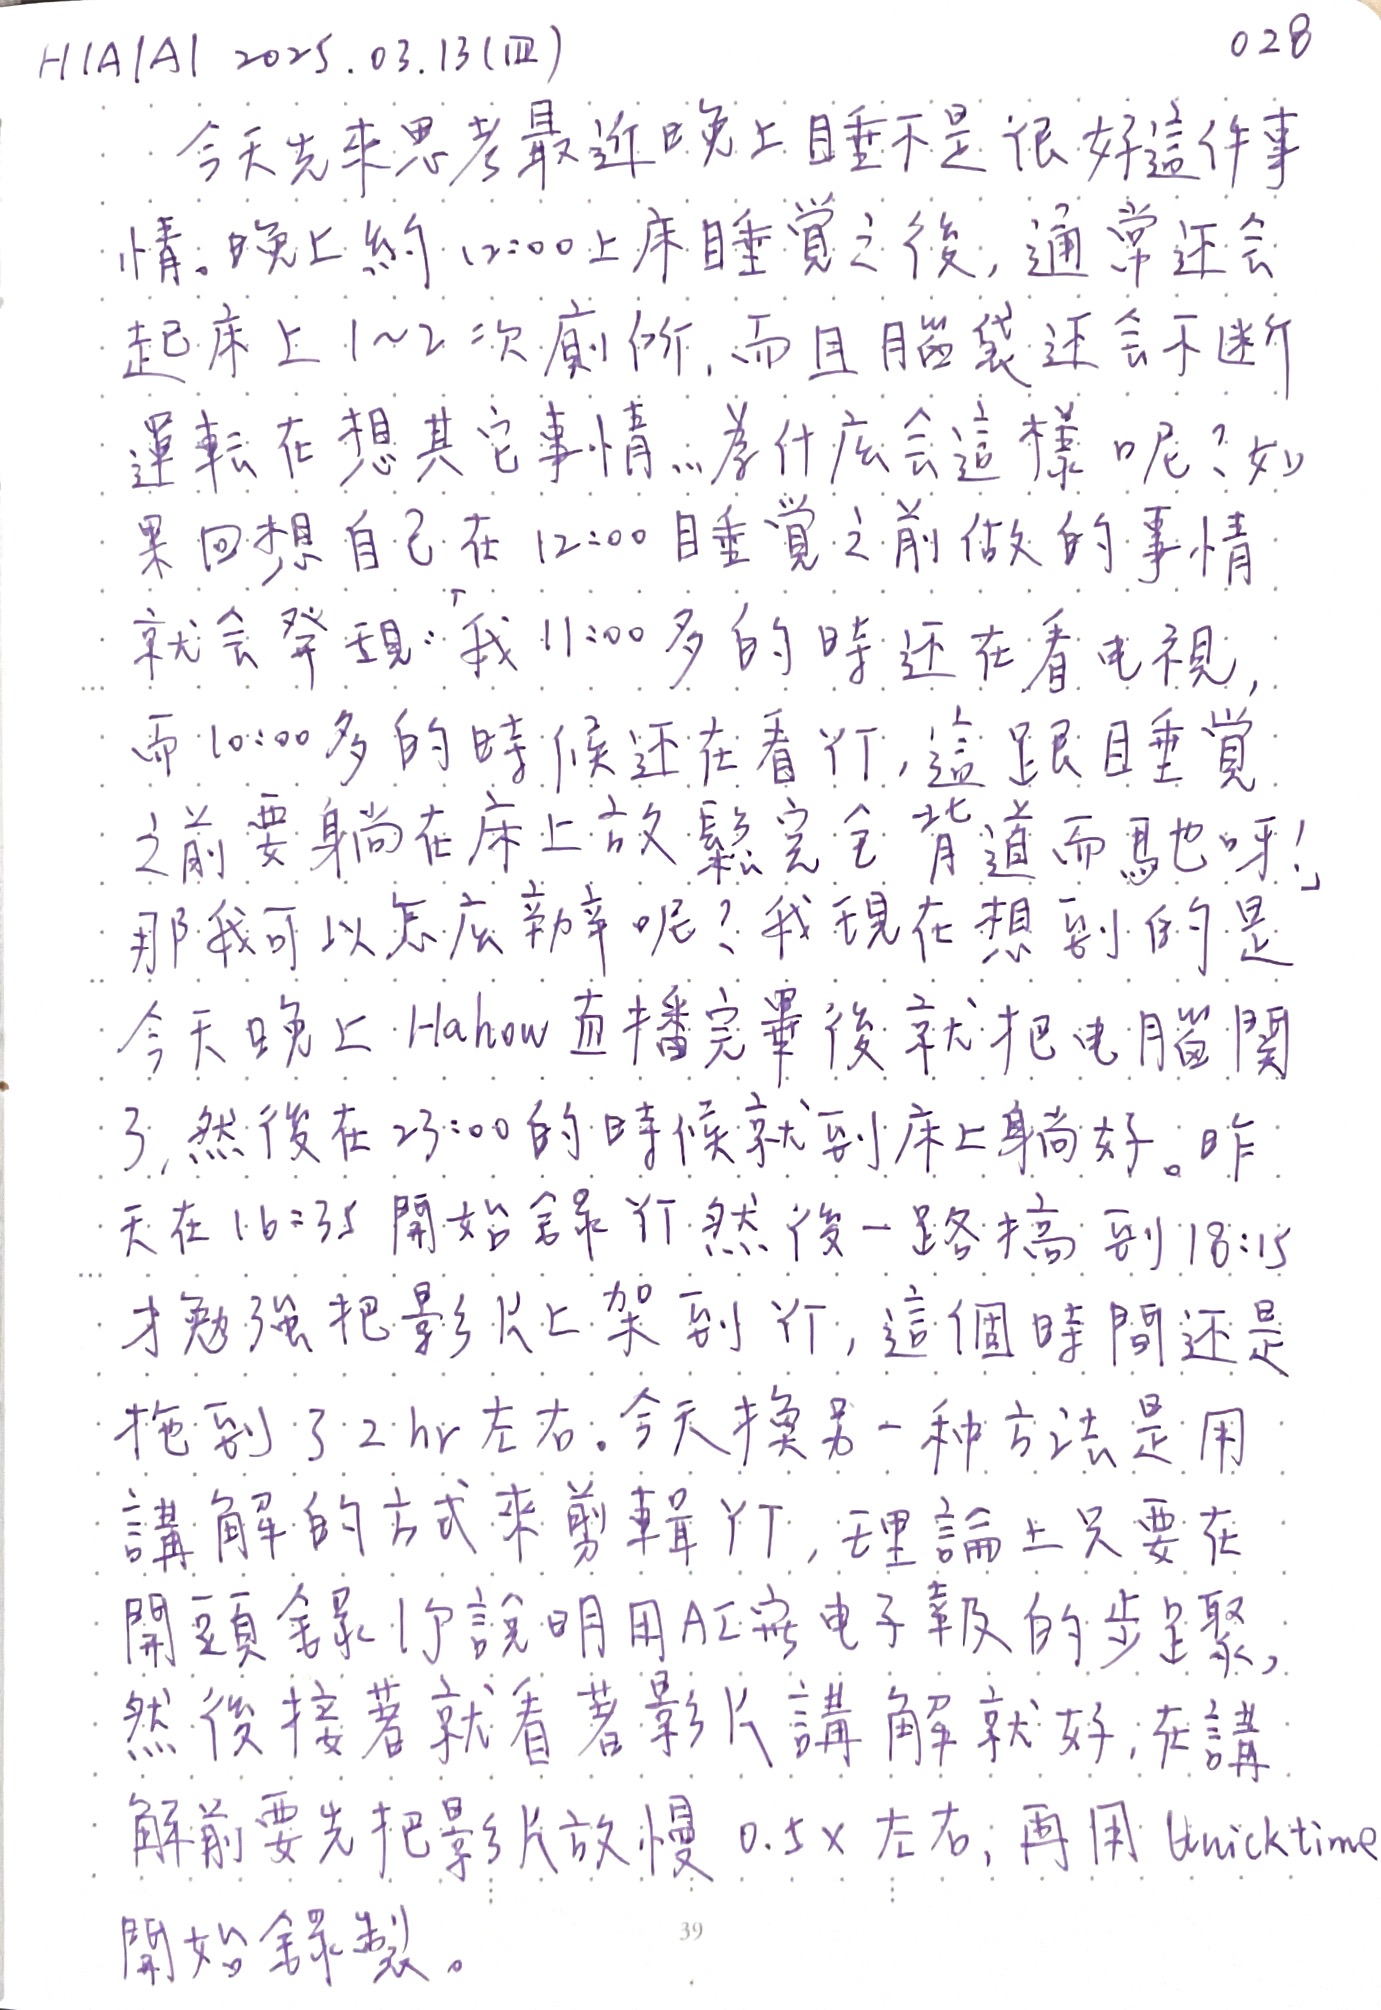 H|A|A| 2025.03.13(四) 028
今天先來思考最近晚上睡不是很好這件事
情。晚上約12:00上床睡覚之後,通常还会
起床上1~2次廁所,而且腦袋还会不断
運転在想其它事情…為什広会這樣呢?如
果回想自己在12:00睡覚之前做的事情
就会発現:「我11:00多的時还在看电視,
而10:00多的時候还在看YT,這跟睡覚
之前要躺在床上放鬆完全背道而馳也呀!」
那我可以怎広辦呢?我現在想到的是
今天晚上Hahow直播完畢後就把电腦関
了,然後在23:00的時候就到床上躺好。昨
天在16:35開始録YT然後一路搞到18:15
才勉強把影片上架到YT,這個時間还是
拖到了2hr左右。今天換另一种方法是用
講解的方式來剪輯YT,理論上只要在
開頭録1分說明用AI寫电子報的步足聚,
然後接著就看著影片講解就好,在講
解前要先把影片放慢0.5x左右,再用Quicktime
開始録製。
39